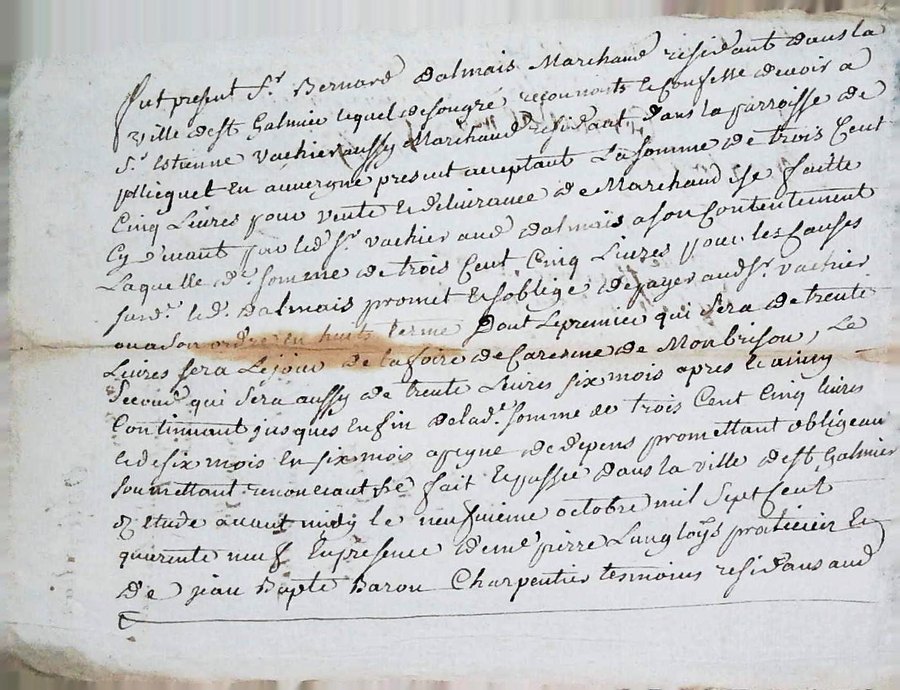 fut present Sr. Bernard Dalmais Marchand residant dans la
ville de st Galmier lequel de son gré reconnoist & confesse devoir a
Sr. Estienne Vachier aussy Marchand residant dans la parroisse de
en auvergne present acceptant La somme de trois Cent
Cinq Livres pour vente & delivrance de Marchandise faitte
Cy devant par led. Sr. Vachier aud. Dalmais a son Contentement
Laquelle de. somme de trois Cent Cinq Livres pour les causes
susd. led. Dalmais promet & soblige de payer aud. Sr. Vachier
ou a son ordre en huits terme Dont Le premier qui sera de trente
Livres sera Le jour de la foire de Caresme de Monbrison, Le
Second qui sera aussy de trente Livres six mois apres & ainsy
Continuant jusques en fin de lade. somme de trois Cent Cinq livres
& de six mois en six mois a peyne de depens promettant obligeant
soumettant renoncant &c fait & passé dans la ville de st Galmier
etude avant midy le neufuieme octobre mil Sept Cent
quarente neuf En presence de me. pierre Langloys praticien &
de jean Bapte Baron Charpentier tesmoins residans aud